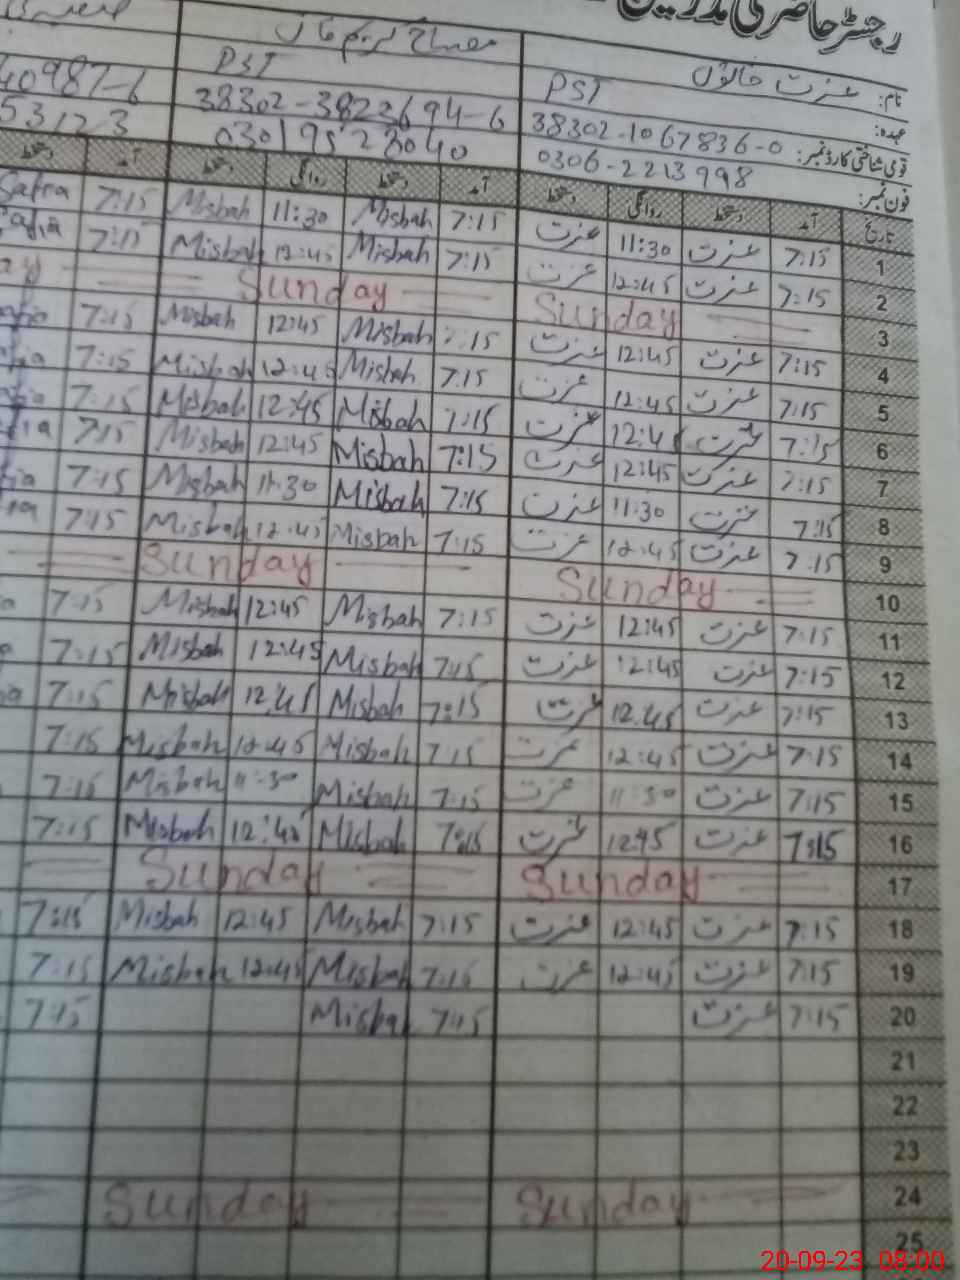 رجسٹر حاضری مدرسین
نام: عزت خاتون مصباح کریم خان
عہدہ: PST PST
قومی شناختی کارڈ نمبر: 38302-1067836-0 38302-3823694-6 40987-6
فون نمبر: 0306-2213998 03019528040 53123
تاریخ آمد دستخط روانگی دستخط آمد دستخط روانگی دستخط آمد دستخط
1 7:15 عزت 11:30 عزت 7:15 Misbah 11:30 Misbah 7:15 Safia
2 7:15 عزت 12:45 عزت 7:15 Misbah 12:45 Misbah 7:15 Safia
3 Sunday Sunday
4 7:15 عزت 12:45 عزت 7:15 Misbah 12:45 Misbah 7:15
5 7:15 عزت 12:45 عزت 7:15 Misbah 12:45 Misbah 7:15
6 7:15 عزت 12:45 عزت 7:15 Misbah 12:45 Misbah 7:15
7 7:15 عزت 12:45 عزت 7:15 Misbah 12:45 Misbah 7:15
8 7:15 عزت 11:30 عزت 7:15 Misbah 11:30 Misbah 7:15
9 7:15 عزت 12:45 عزت 7:15 Misbah 12:45 Misbah 7:15
10 Sunday Sunday
11 7:15 عزت 12:45 عزت 7:15 Misbah 12:45 Misbah 7:15
12 7:15 عزت 12:45 عزت 7:15 Misbah 12:45 Misbah 7:15
13 7:15 عزت 12:45 عزت 7:15 Misbah 12:45 Misbah 7:15
14 7:15 عزت 12:45 عزت 7:15 Misbah 12:45 Misbah 7:15
15 7:15 عزت 11:30 عزت 7:15 Misbah 11:30 Misbah 7:15
16 7:15 عزت 12:45 عزت 7:15 Misbah 12:45 Misbah 7:15
17 Sunday Sunday
18 7:15 عزت 12:45 عزت 7:15 Misbah 12:45 Misbah 7:15
19 7:15 عزت 12:45 عزت 7:15 Misbah 12:45 Misbah 7:15
20 7:15 عزت 7:15 Misbah 7:15
21
22
23
24 Sunday Sunday
25
20-09-23 08:00